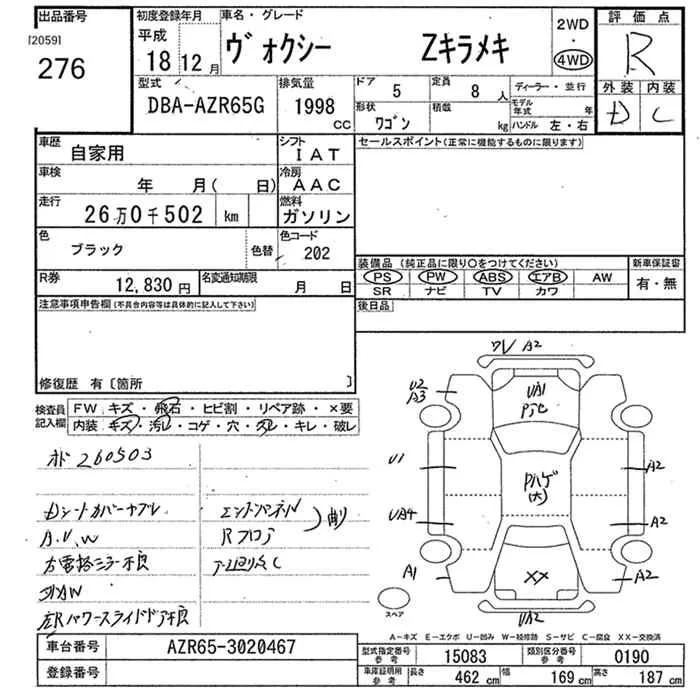 出品番号
[2059]
276
初度登録年月
平成
18 12月
車名・グレード
ヴォクシー Zキラメキ
2WD
・
4WD
評価点
R
外装 内装
D C
型式
DBA-AZR65G
排気量
1998 CC
ドア
5
定員
8人
形状
ワゴン
積載
kg
ディーラー・並行
モデル年式 年
ハンドル 左・右
車歴
自家用
シフト
IAT
車検
年 月( 日)
冷房
AAC
走行
26万0千502 km
燃料
ガソリン
色
ブラック
色替
色コード
202
R券
12,830円
名変通知期限
月 日
セールスポイント(正常に機能するものに限ります)
装備品 (純正品に限り〇をつけてください)
PS PW ABS エアB AW
SR ナビ TV カワ
新車保証書
有・無
後日品
注意事項申告欄(不具合内容等は具体的に記入して下さい)
修復歴 有〔箇所 〕
検査員記入欄
FW キズ・飛石・ヒビ割・リペア跡・×要
内装 キズ・汚レ・コゲ・穴・スレ・キレ・破レ
260503
A.V.W
Rフロア
削
左Rパワースライドドア不良
ワレ A2
U2
A3
UA1
U1
UA4
A1
Pハゲ
(大)
A2
A2
XX
A2
UA2
スペア
A-キズ E-エクボ U-凹み W-補修跡 S-サビ C-腐食 XX-交換済
車台番号
AZR65-3020467
登録番号
型式指定番号
参考
15083
類別区分番号
参考
0190
車庫証明用
参考
長さ
462 cm
幅
169 cm
高さ
187 cm